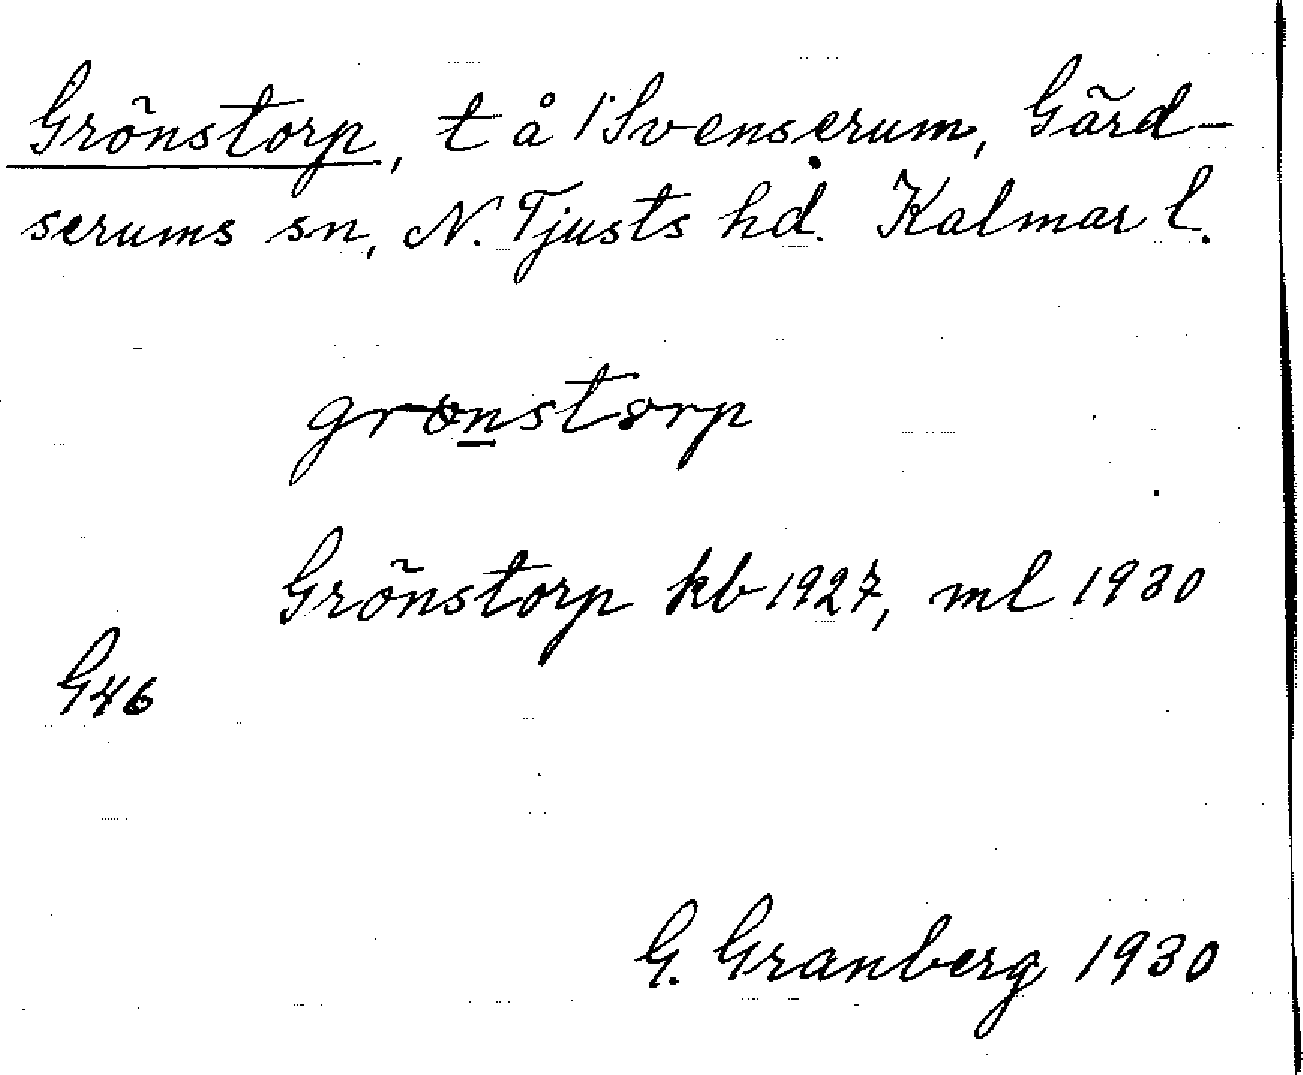 Grönstorp, t å 1 Svenserum, Gärd-
serums sn, N. Tjusts hd. Kalmar l.
grönstorp
Grönstorp kb 1927, ml 1930
G46
G. Granberg 1930